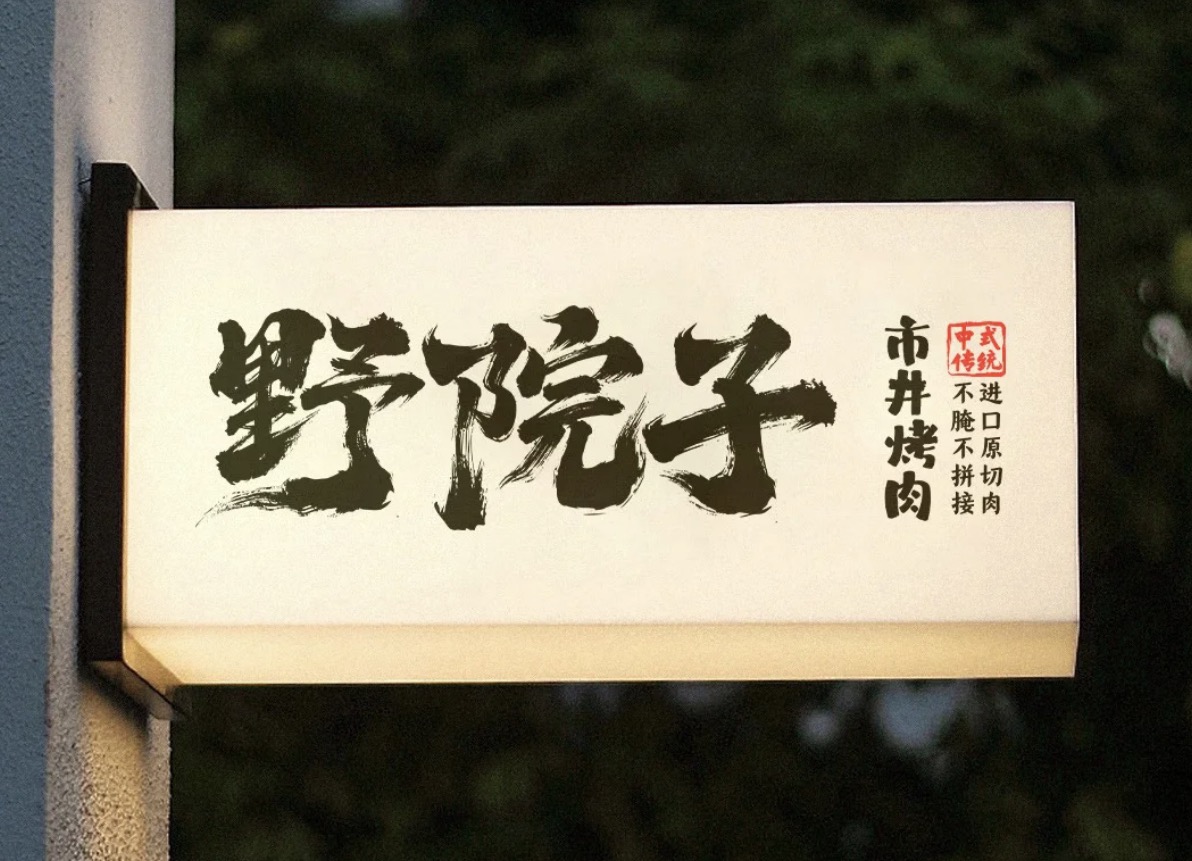 野院子
市井烤肉
中式
传统
进口原切肉
不腌不拼接